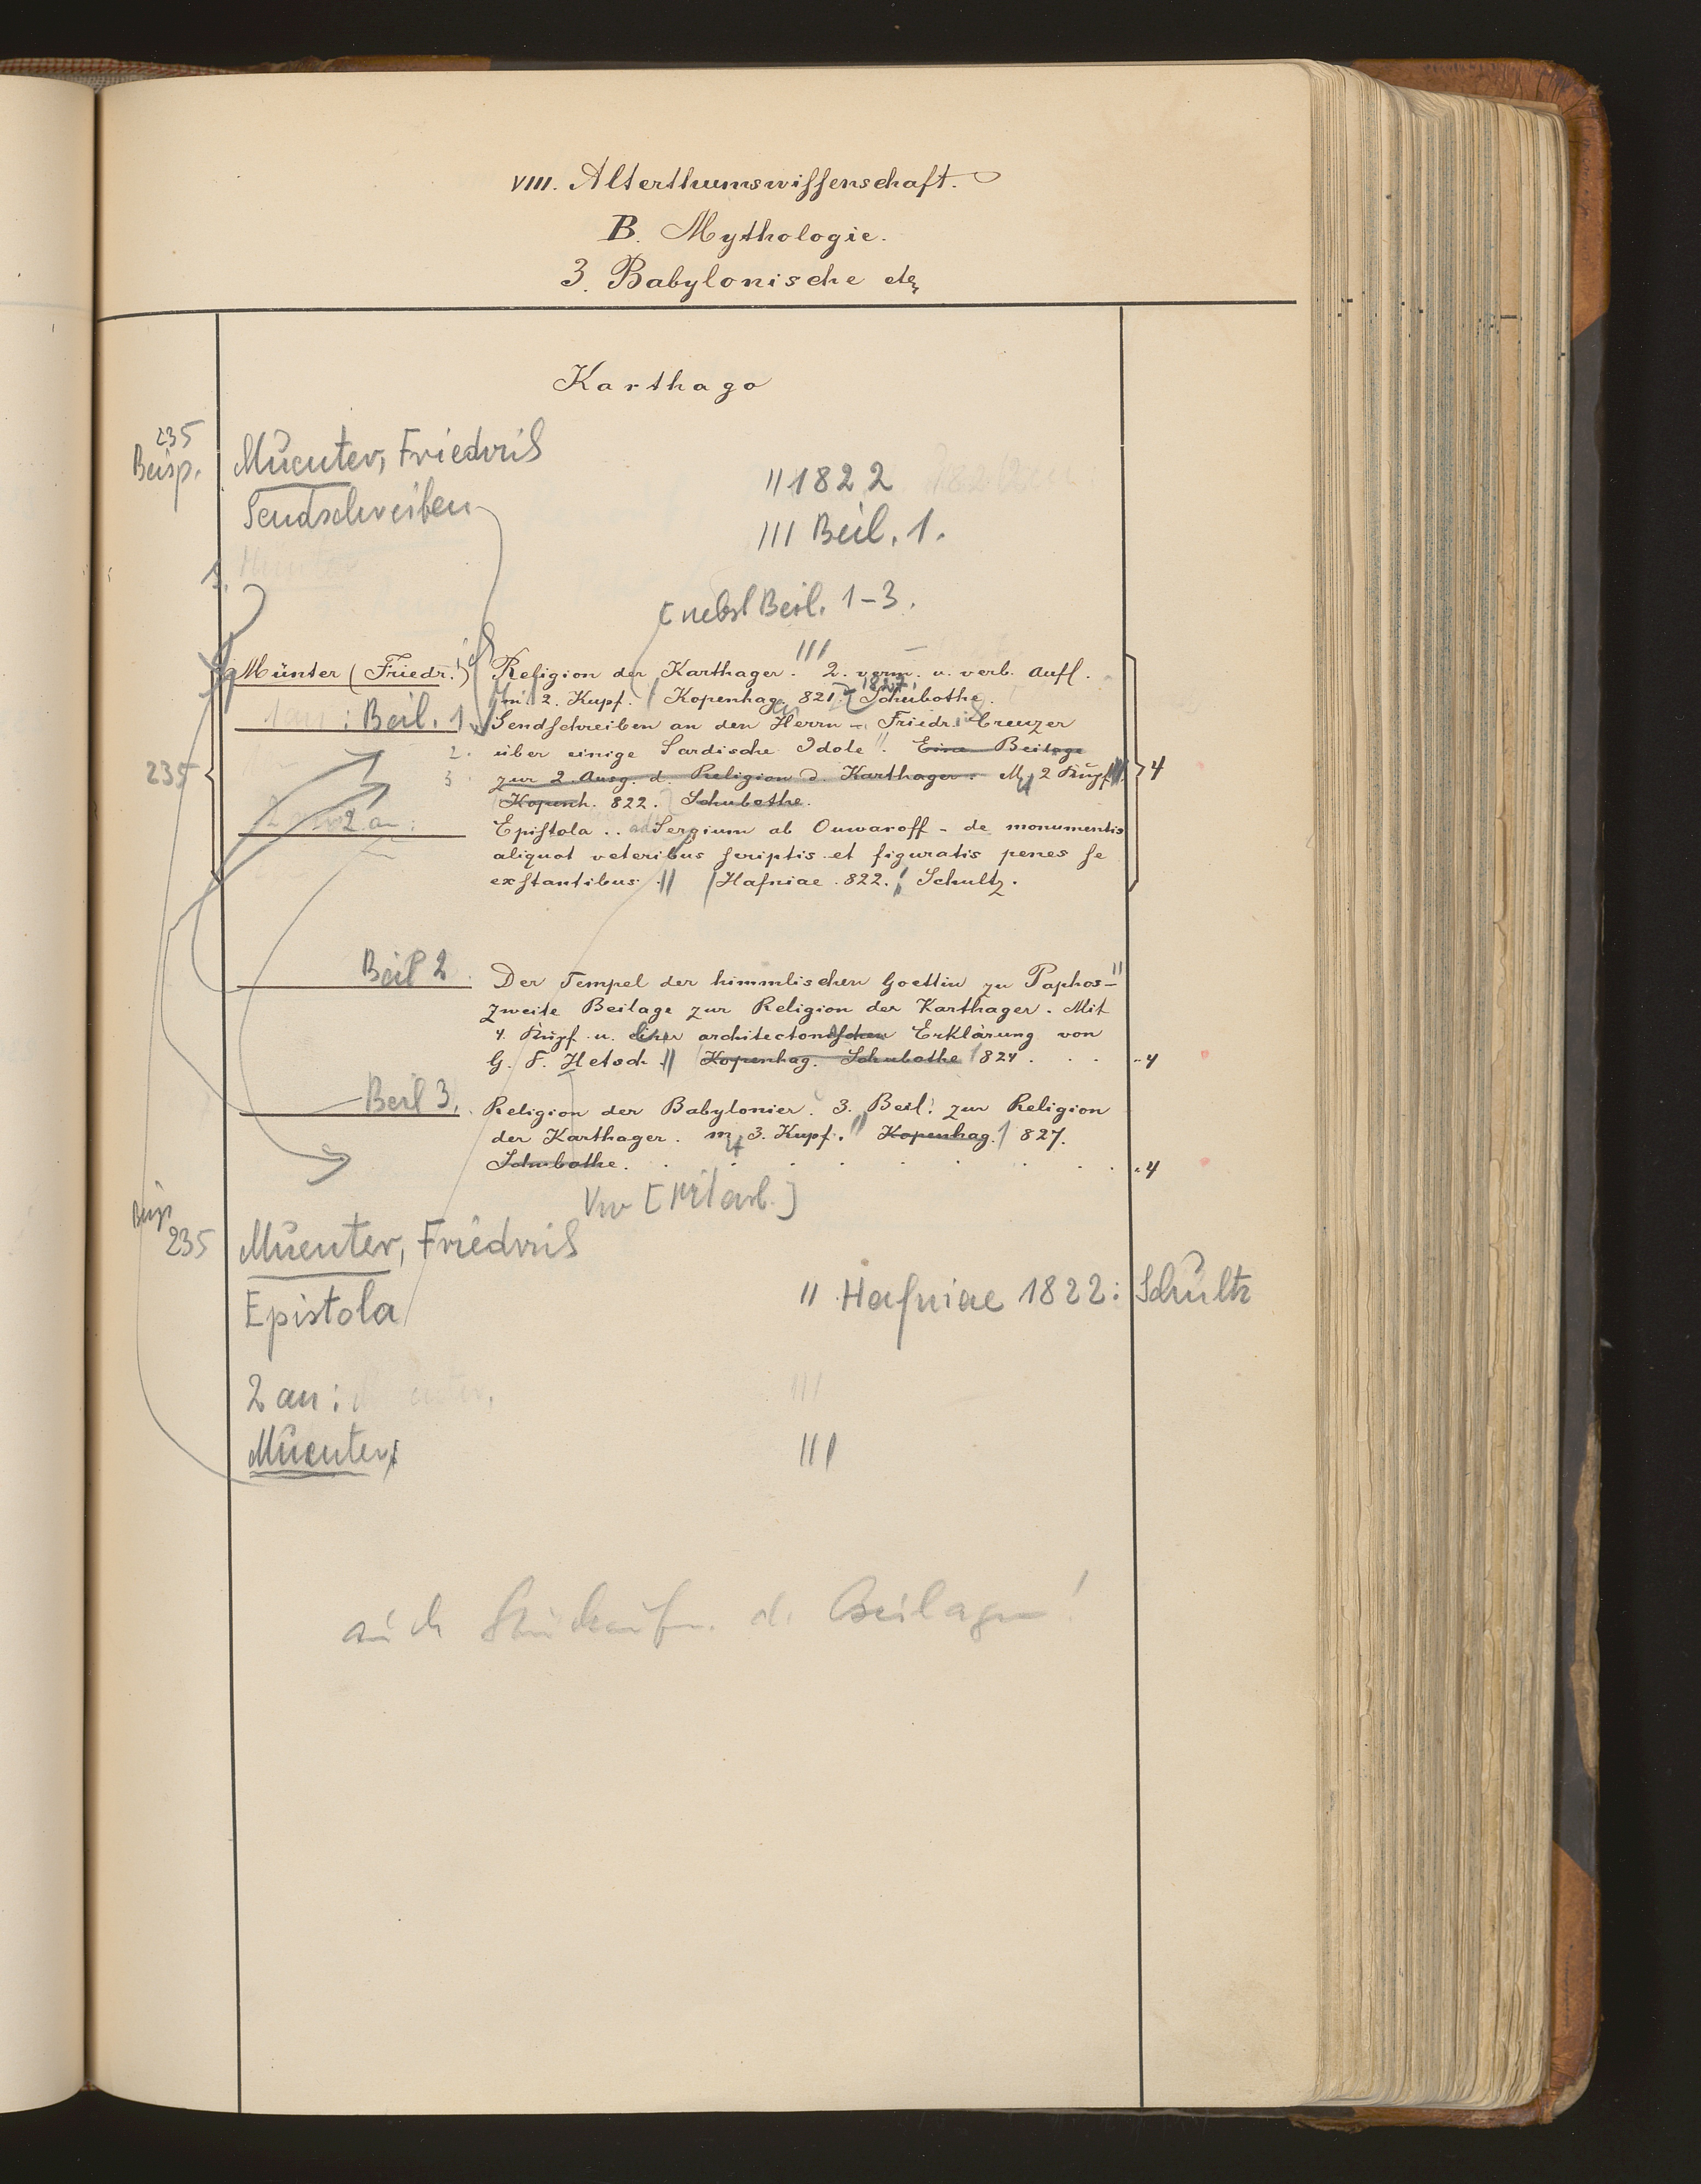 VIII. Alterthumswissenschaft.
B. Mythologie.
3. Babylonische etc
Karthago
235
Beisp.
Muenter, Friedrich
Sendschreiben
" 1822
III Beil. 1.
[nebst Beil. 1-3.
Münter (Friedr.) Religion der Karthager. 2. verm. u. verb. Aufl.
m. 2. Kupf. Kopenhag. 821. 1827. Schubothe.
1 an: Beil. 1 Sendschreiben an den Herrn - Friedr. Creuzer
2. über einige Sardische Idole". Eine Beilage
235
3 zur 2. Ausg. d. Religion d. Karthager. M. 2 Kupf. 4
Kopenh. 822. Schubothe.
2 an: Epistola .. ad Sergium ab Ouwaroff - de monumentis
aliquot veteribus scriptis et figuratis penes se
exstantibus. " Hafniae. 822. Schultz.
Beil 2 Der Tempel der himmlischen Goettin zu Paphos-"
zweite Beilage zur Religion der Karthager. Mit
4. Kupf. u. einer architectonischen Erklärung von
G. F. Hetsch " Kopenhag. Schubothe 824. . . - 4
Beil 3. Religion der Babylonier. 3. Beil. zur Religion
der Karthager. m. 3. Kupf. " Kopenhag. 827.
Schubothe. . . . . . . . . . 4
Vw [Mitarb.]
Beisp
235 Muenter, Friedrich
Epistola
" Hafniae 1822: Schultz
2 an:
III
Muenter: III
auch Stückaufn. d. Beilagen!